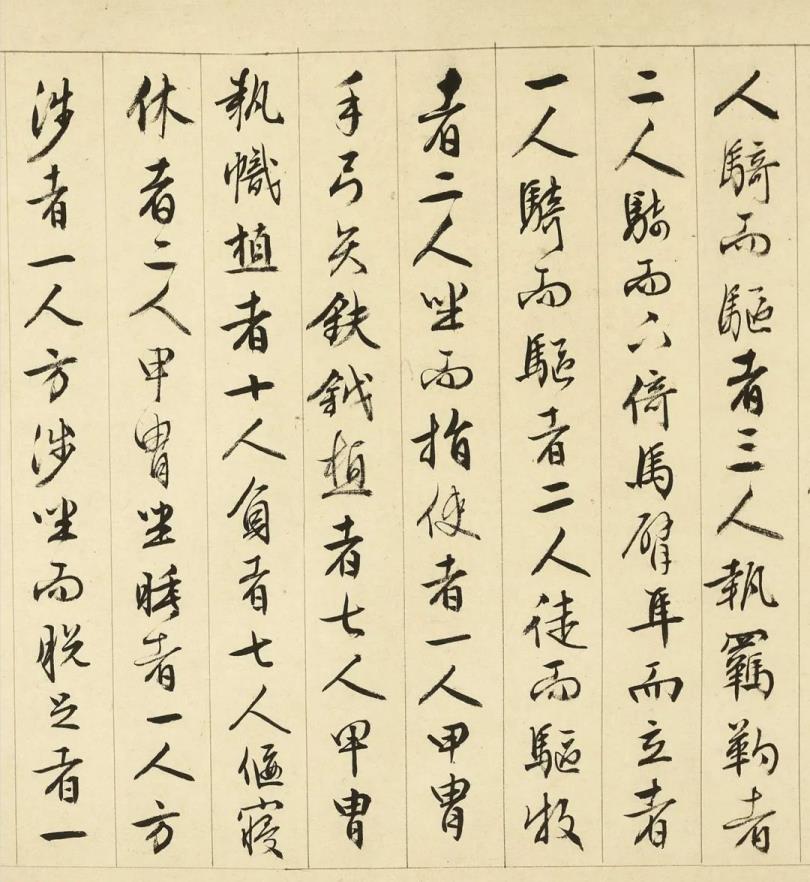 人騎而驅者三人執羈勒者
二人騎而下倚馬臂隼而立者
一人騎而驅者二人徒而驅牧
者二人坐而指使者一人甲冑
手弓矢鈇鉞植者七人甲冑
執幟植者十人負者七人偃寢
休者二人甲冑坐睡者一人方
涉者一人方涉坐而脫足者一